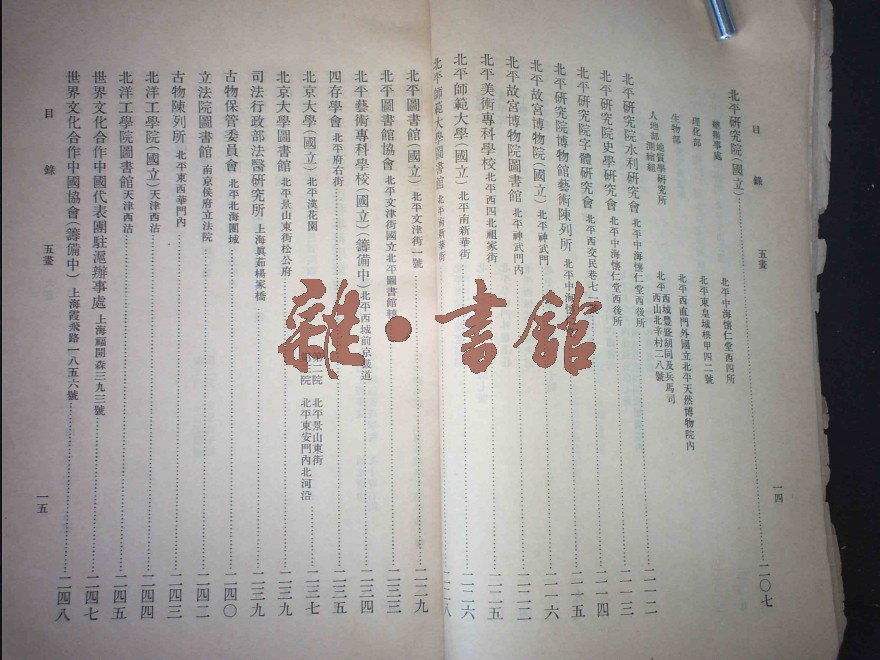 目錄
五畫
一四
北平研究院(國立)……二〇七
總辦事處 北平中海懷仁堂西四所
理化部 北平東皇城根甲四二號
生物部 北平西直門外國立北平天然博物院內
人地部 地質學研究所 北平西城豐盛胡同及兵馬司
測繪組 北平西山北辛村二八號
北平研究院水利研究會 北平中海懷仁堂西後所……二一二
北平研究院史學研究會 北平中海懷仁堂西後所……二一三
北平研究院字體研究會 北平西交民巷七一……二一四
北平研究院博物館藝術陳列所 北平中海懷仁……二一五
北平故宮博物院(國立) 北平神武門……二一六
北平故宮博物院圖書館 北平神武門內……二二二
北平美術專科學校 北平西四北祖家街……二二五
北平師範大學(國立) 北平南新華街……二二六
北平師範大學圖書館 北平南新華街……二二八
北平圖書館(國立) 北平文津街一號……二二九
北平圖書館協會 北平文津街國立北平圖書館轉……二三三
北平藝術專科學校(國立)(籌備中) 北平西城前京畿道……二三四
四存學會 北平府右街……二三五
北京大學(國立) 北平漢花園 第二院 北平景山東街 第三院 北平東安門內北河沿……二三七
北京大學圖書館 北平景山東街松公府……二三九
司法行政部法醫研究所 上海真茹楊家橋……二三九
古物保管委員會 北平北海團城……二四〇
立法院圖書館 南京侯府立法院……二四二
古物陳列所 北平東西華門內……二四三
北洋工學院(國立) 天津西沽……二四四
北洋工學院圖書館 天津西沽……二四五
世界文化合作中國代表團駐滬辦事處 上海福開森三九三號……二四七
世界文化合作中國協會(籌備中) 上海霞飛路一八五六號……二四八
目錄
五畫
一五
雜·書館